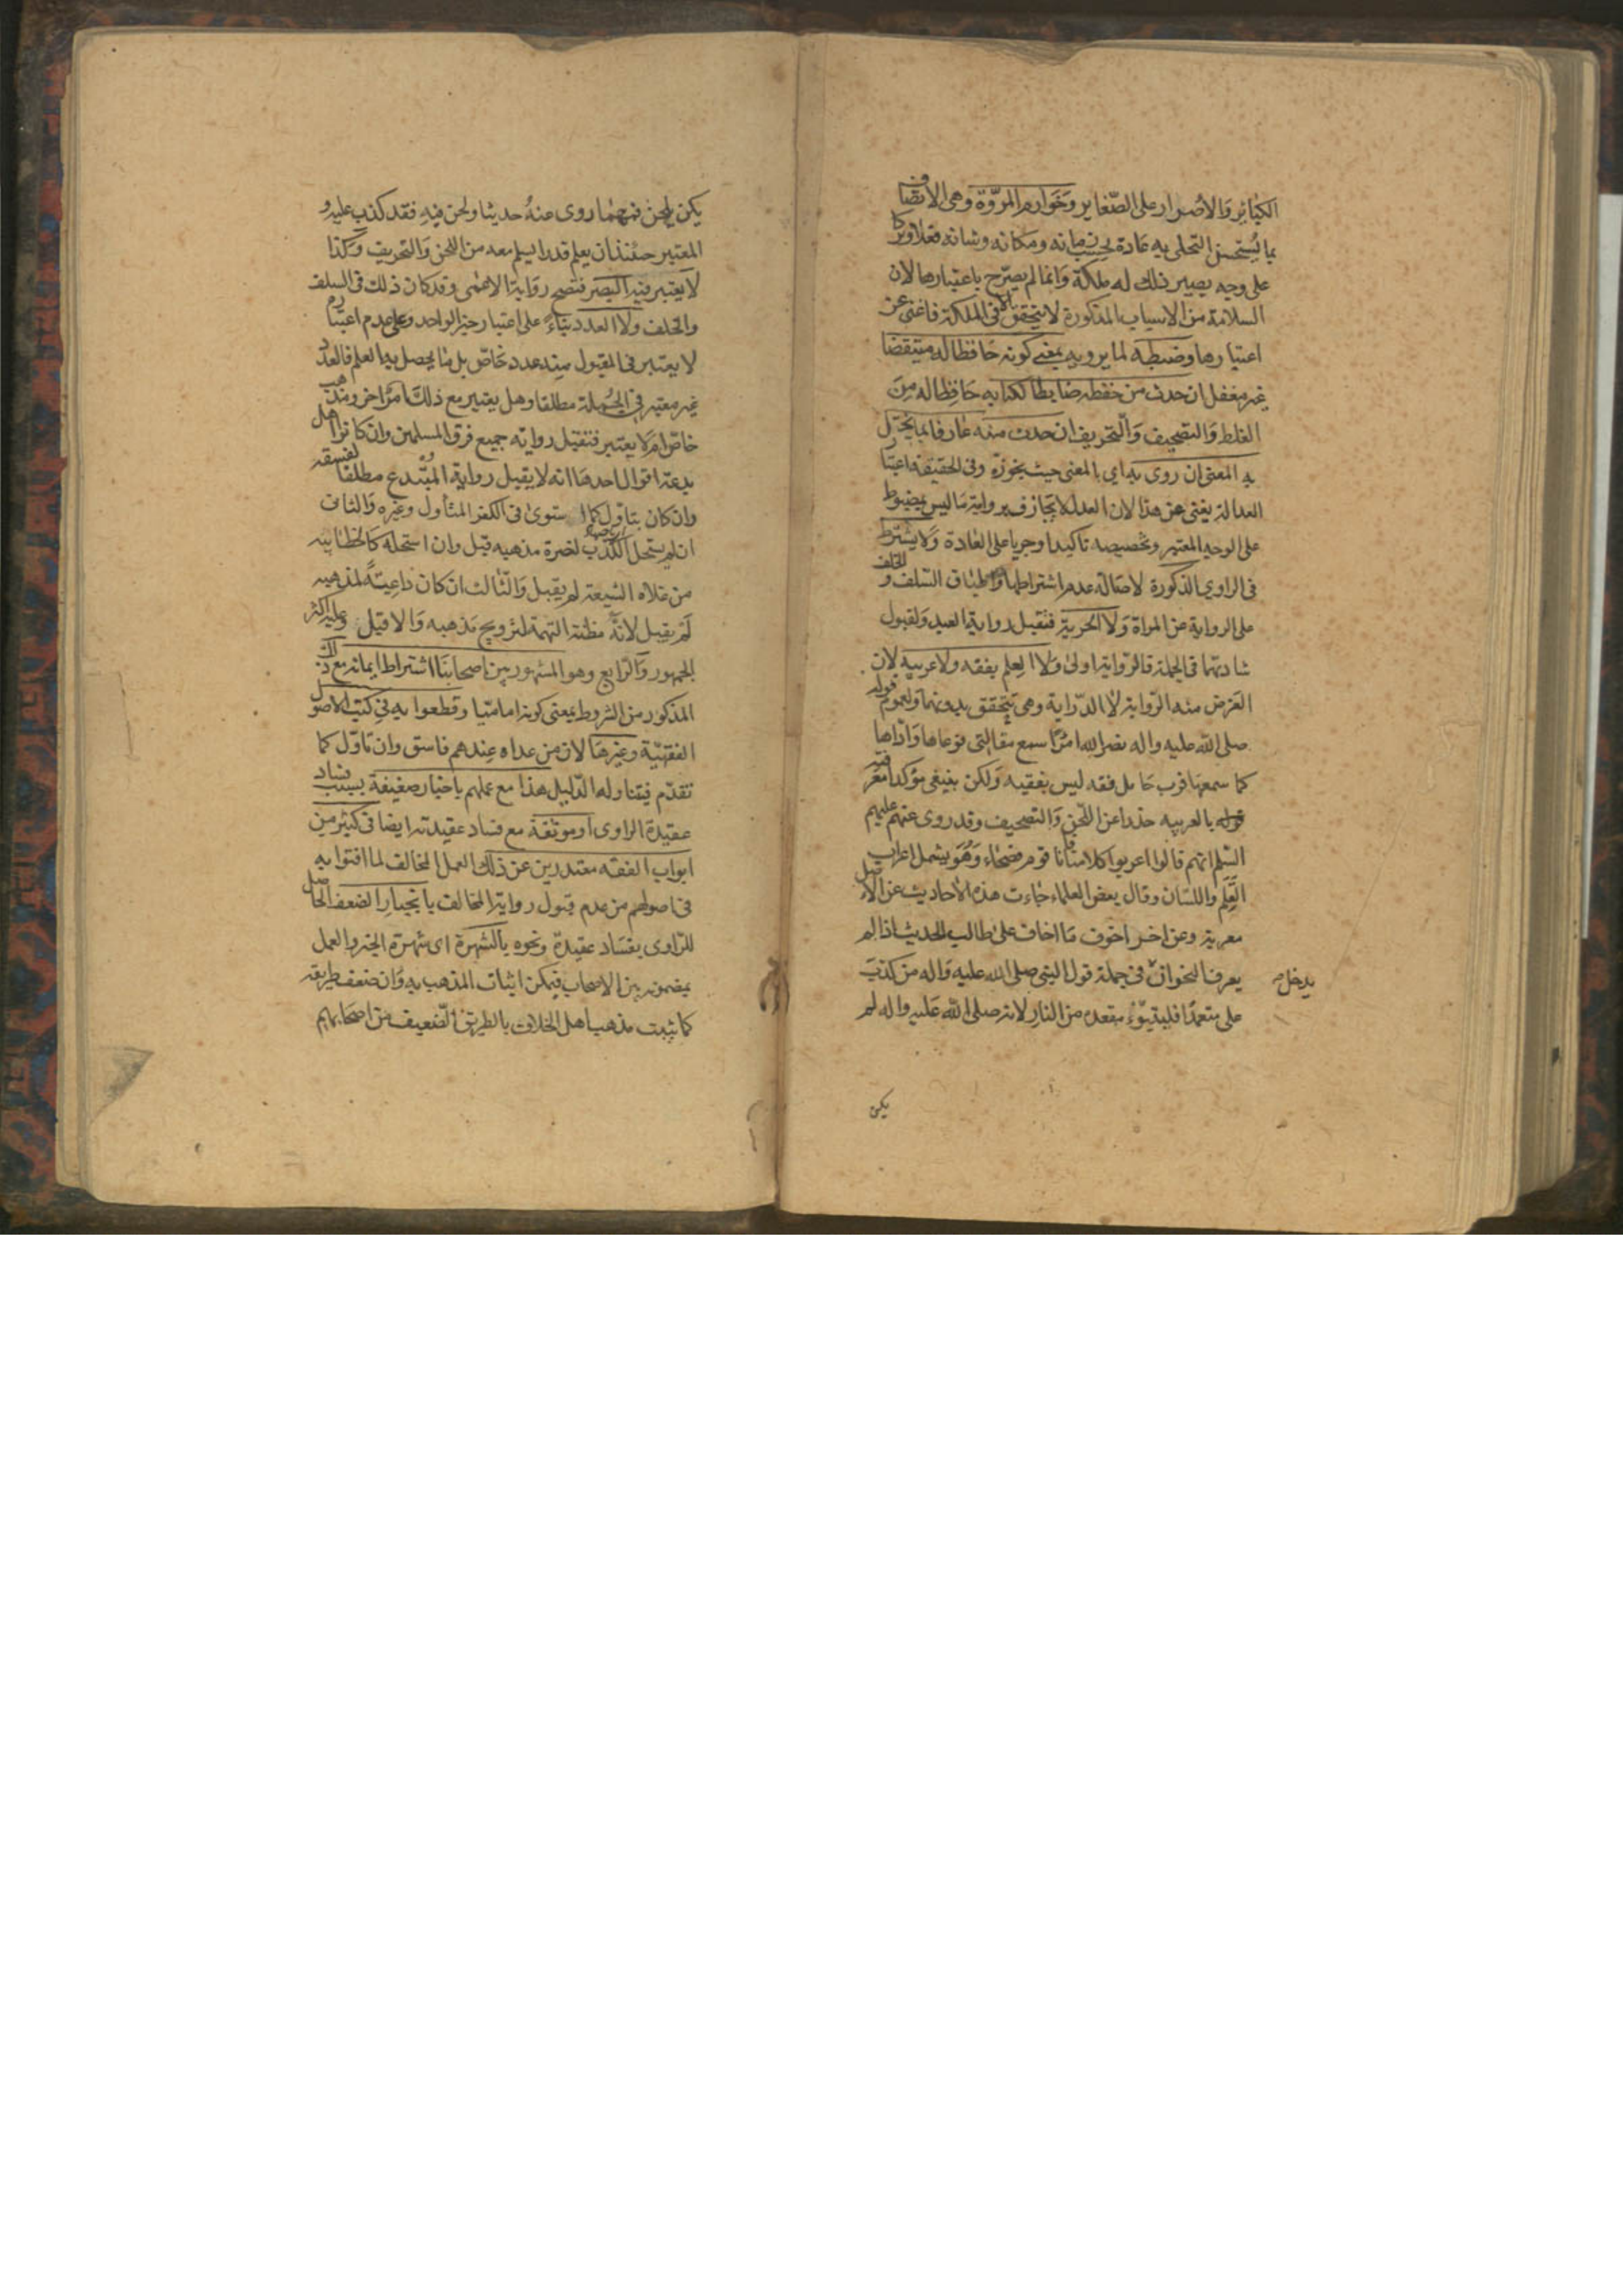 الكبائر والاصرار على الصغاير وخوارم المروة وهى الاتصاف
بما يستحسن التحلى به عادة بحسب زمانه ومكانه وشانه فعلا وتركا
على وجه يصير ذلك له ملكة وانما لم يصرح باعتبارها لان
السلامة من الاسباب المذكورة لا يتحقق الا فى الملكة فاغنى عن
اعتبارها وضبطه لما يرويه بمعنى كونه حافظا له متيقضا
غير مغفل ان حدث من حفظه ضابطا لكتابه حافظا له من
الغلط والتصحيف والتحريف ان حدث منه عارفا بما يختل
به المعنى ان روى به اى بالمعنى حيث يجوزه وفى الحقيقة اعتبار
العدالة يغنى عن هذا لان العدل لا يجازف برواية ما ليس بمضبوط
على الوجه المعتبر وتخصيصه تاكيد او جريا على العادة ولا يشترط
فى الراوى الذكورة لاصالة عدم اشتراطها واطباق السلف والخلف
على الرواية عن المراة ولا الحرية فتقبل رواية العبد ولقبول
شهادتهما فى الجملة فالرواية اولى ولا العلم بفقه ولا عربيه لان
الغرض منه الرواية لا الدراية وهى تتحقق بدونهما ولعموم قوله
صلى الله عليه واله نضر الله امرأ سمع مقالتى فوعاها واداها
كما سمعها فرب حامل فقه ليس بفقيه ولكن ينبغى مؤكدا معرفته
بالعربيه حذرا عن اللحن والتصحيف وقد روى عنهم عليهم
السلم انهم قالوا اعربوا كلامنا فانا قوم فصحاء وهو يشمل اعراب
القلم واللسان وقال بعض العلماء جاءت هذه الاحاديث عن الاصل
معربة وعن اخر اخوف ما اخاف على طالب الحديث اذا لم
يعرف النحو ان يدخل فى جملة قول النبى صلى الله عليه واله من كذب
على متعمدا فليتبوء مقعده من النار لانه صلى الله عليه واله لم
يكن
يكن يلحن فمهما روى عنه حديثا ولحن فيه فقد كذب عليه و
المعتبر حينئذ ان يعلم قدرا يسلم معه من اللحن والتحريف وكذا
لا يعتبر فيه البصر فتصح رواية الاعمى وقد كان ذلك فى السلف
والخلف ولا العدد بناء على اعتبار خبر الواحد وعلى عدم اعتباره
لا يعتبر فى المقبول منه عدد خاص بل ما يحصل به العلم فالعدد
غير معتبر فى الجملة مطلقا وهل يعتبر مع ذلك امر اخر ومذهب
خاص ام لا يعتبر فتقبل رواية جميع فرق المسلمين وان كانوا اهل
بدعة اقوال احدها انه لا يقبل رواية المبتدع مطلقا لفسقه
وان كان يتاول كما استوى فى الكفر المتأول وغيره والثانى
ان لم يستحل الكذب لنصرة مذهبه قبل وان استحله كالخطابيه
من غلاه الشيعة لم يقبل والثالث ان كان داعية لمذهبه
لم يقبل لانه مظنة التهمة لترويج مذهبه والا قبل وعليه اكثر
الجمهور والرابع وهو المشهور بين اصحابنا اشتراط ايمانه مع ذلك
المذكور من الشروط بمعنى كونه اماميا وقطعوا به فى كتب الاصول
الفقهية وغيرها لان من عداه عندهم فاسق وان تاول كما
تقدم فيتناوله الدليل هذا مع عملهم باخبار ضعيفة بسبب فساد
عقيدة الراوى او موثقة مع فساد عقيدته ايضا فى كثير من
ابواب الفقه معتذرين عن ذلك العمل المخالف لما افتوا به
فى اصولهم من عدم قبول رواية المخالف بانجبار الضعف الحاصل
للراوى بفساد عقيدة ونحوه بالشهرة اى شهرة الخبر والعمل
بمضمونه بين الاصحاب فيمكن اثبات المذهب به وان ضعف طريقه
كما يثبت مذهب اهل الخلاف بالطريق الضعيف من اصحابهم